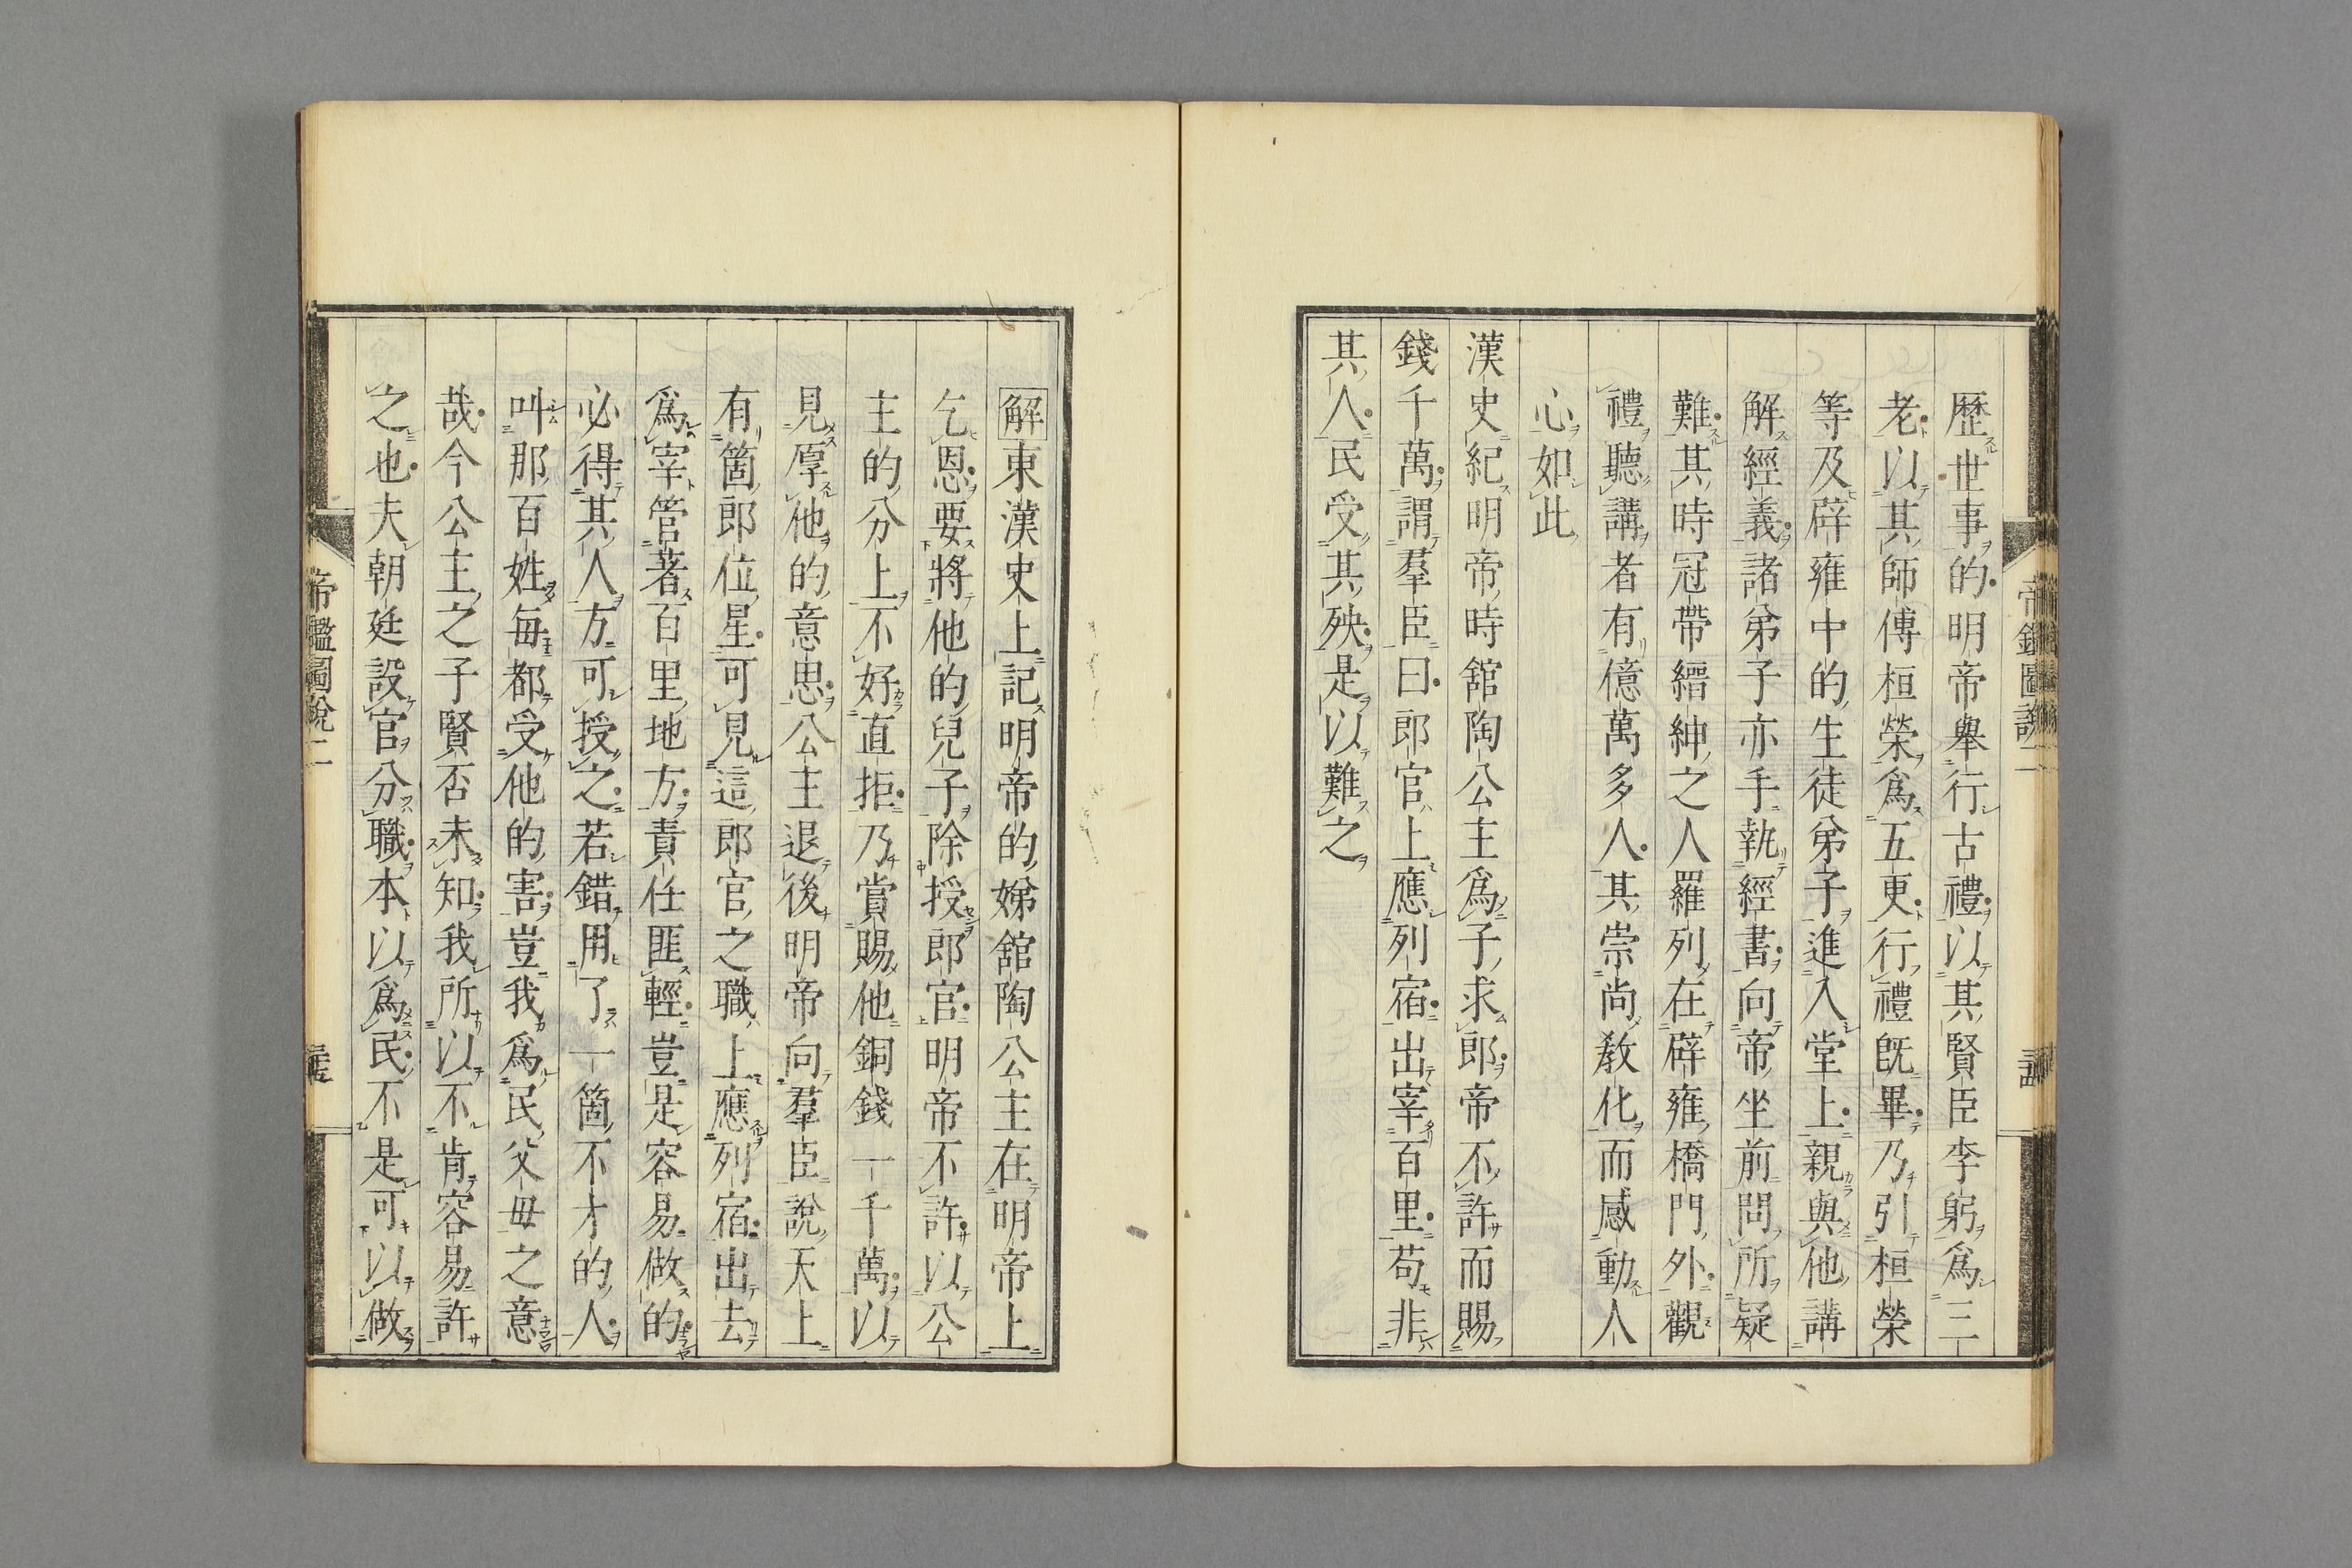 歴世事的明帝舉行古禮以其賢臣李躬爲三
老以其師傅桓榮爲五更行禮旣畢乃引桓榮
等及辟雍中的生徒弟子進入堂上親與他講
解經義諸弟子亦手執經書向帝坐前問所疑
難其時冠帶縉紳之人羅列在辟雍橋門外觀
禮聽講者有億萬多人其崇尚教化而感動人
心如此
漢史紀明帝時舘陶公主爲子求郎帝不許而賜
錢千萬謂羣臣曰郎官上應列宿出宰百里苟非
其人民受其殃是以難之
解東漢史上記明帝的娣舘陶公主在明帝上
乞恩要將他的兒子除授郎官明帝不許以公
主的分上不好直拒乃賞賜他銅錢一千萬以
見厚他的意思公主退後明帝向羣臣說天上
有箇郎位星可見這郎官之職上應列宿出去
爲宰管著百里地方責任匪輕豈是容易做的
必得其人方可授之若錯用了一箇不才的人
叫那百姓每都受他的害豈我爲民父母之意
哉今公主之子賢否未知我所以不肯容易許
之也夫朝廷設官分職本以爲民不是可以做
帝鑑圖說二